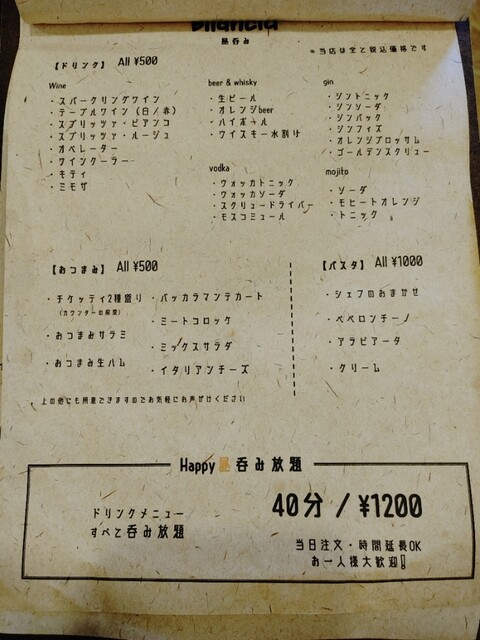 Bilancia
昼呑み
※当店は全て税込価格です
【ドリンク】 All ¥500
Wine
・スパークリングワイン
・テーブルワイン (白/赤)
・スプリッツァ・ビアンコ
・スプリッツァ・ルージュ
・オペレーター
・ワインクーラー
・キティ
・ミモザ
beer & whisky
・生ビール
・オレンジbeer
・ハイボール
・ウイスキー水割け
vodka
・ウォッカトニック
・ウォッカソーダ
・スクリュードライバー
・モスコミュール
gin
・ジントニック
・ジンソーダ
・ジンバック
・ジンフィズ
・オレンジブロッサム
・ゴールデンスクリュー
mojito
・ソーダ
・モヒートオレンジ
・トニック
【おつまみ】 All ¥500
・チケッティ2種盛り
(カウンターの前菜)
・おつまみサラミ
・おつまみ生ハム
・バッカラマンテカート
・ミートコロッケ
・ミックスサラダ
・イタリアンチーズ
上の他にも用意できますのでお気軽にお声がけください
【パスタ】 All ¥1000
・シェフのおまかせ
・ペペロンチーノ
・アラビアータ
・クリーム
Happy昼呑み放題
ドリンクメニュー
すべて呑み放題
40分 / ¥1200
当日注文・時間延長OK
お一人様大歓迎!